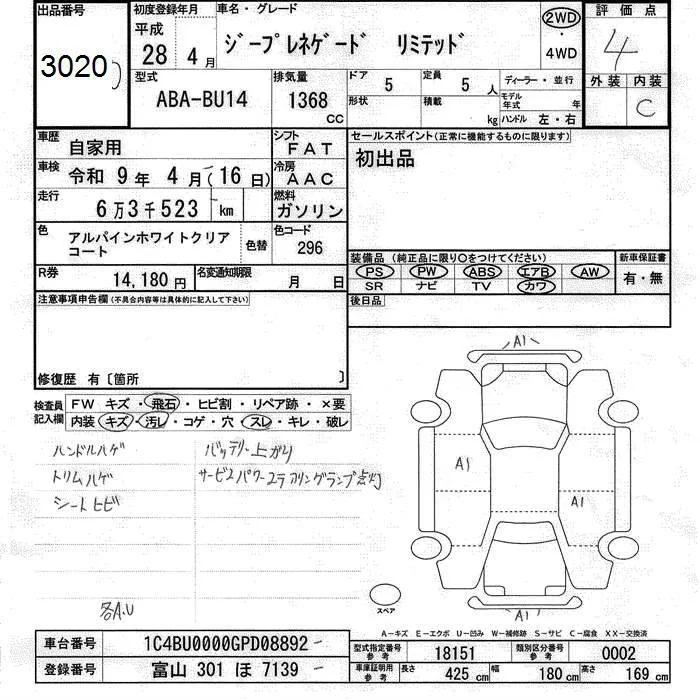 出品番号
3020
初度登録年月
平成
28 4月
車名・グレード
ジープレネゲード リミテッド
2WD
・
4WD
評価点
4
外装 内装
C
型式
ABA-BU14
排気量
1368
CC
ドア
5
定員
5 人
形状
積載
kg
ディーラー・並行
モデル
年式 年
ハンドル 左・右
車歴
自家用
シフト
FAT
車検
令和 9年 4月(16日)
冷房
AAC
走行
6万3千523 km
燃料
ガソリン
色
アルパインホワイトクリア
コート
色替
色コード
296
R券
14,180円
名変通知期限
月 日
セールスポイント(正常に機能するものに限ります)
初出品
装備品(純正品に限り○をつけてください)
PS PW ABS エアB AW
SR ナビ TV カワ
新車保証書
有・無
後日品
注意事項申告欄(不具合内容等は具体的に記入して下さい)
修復歴 有〔箇所 〕
検査員
記入欄
FW キズ・飛石・ヒビ割・リペア跡・×要
内装 キズ・汚レ・コゲ・穴・スレ・キレ・破レ
ハンドルハゲ
トリムハゲ
シートヒビ
バッテリー上がり
サービスパワーステアリングランプ点灯
各A.U
A1
A1
A1
A1
スペア
A-キズ E-エクボ U-凹み W-補修跡 S-サビ C-腐食 XX-交換済
車台番号
1C4BU0000GPD08892
登録番号
富山 301 ほ 7139
型式指定番号
参考
18151
類別区分番号
参考
0002
車庫証明用
参考
長さ
425 cm
幅
180 cm
高さ
169 cm